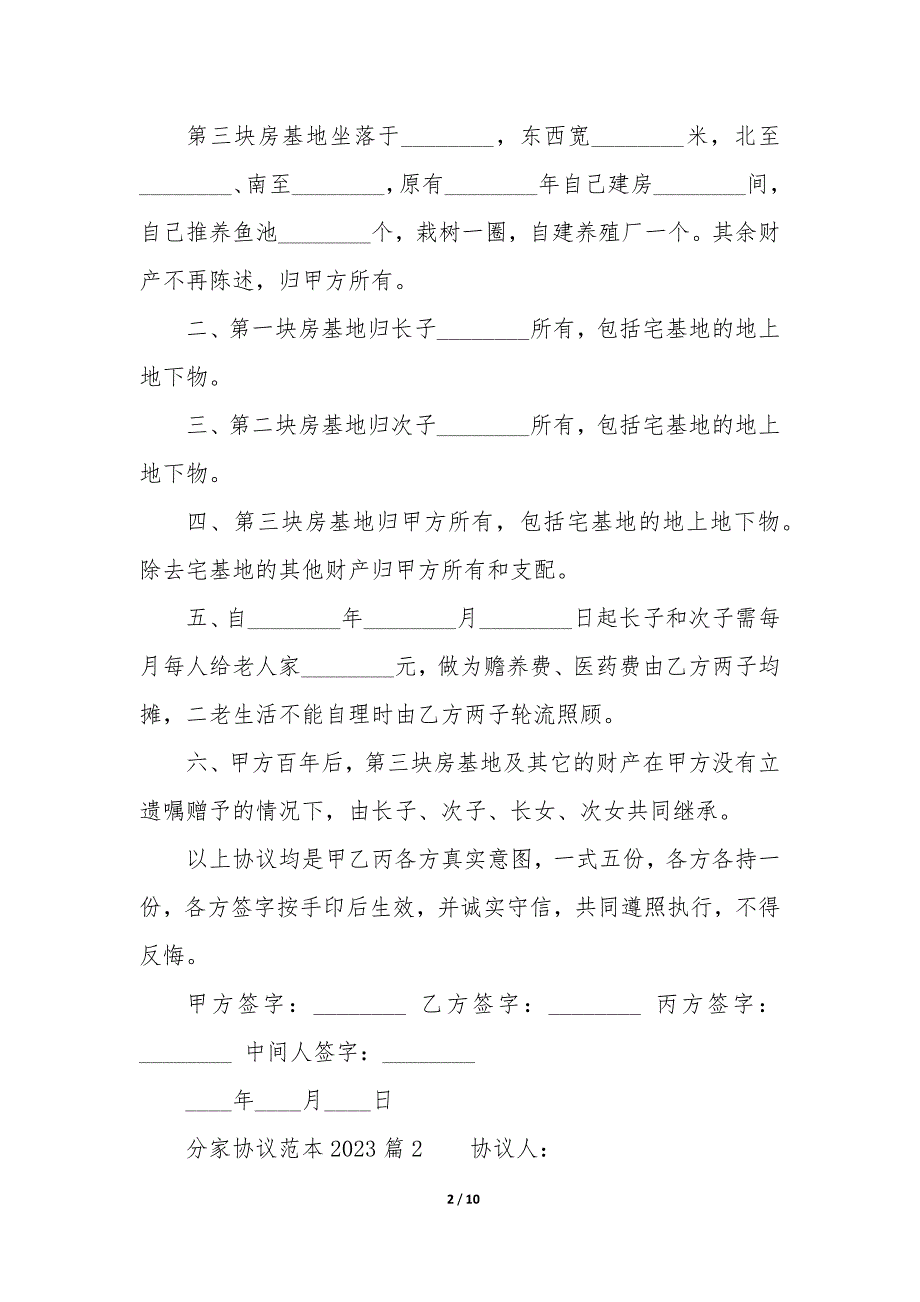 第三块房基地坐落于________，东西宽________米，北至
________、南至________，原有________年自己建房________间，
自己推养鱼池________个，栽树一圈，自建养殖厂一个。其余财
产不再陈述，归甲方所有。
二、第一块房基地归长子________所有，包括宅基地的地上
地下物。
三、第二块房基地归次子________所有，包括宅基地的地上
地下物。
四、第三块房基地归甲方所有，包括宅基地的地上地下物。
除去宅基地的其他财产归甲方所有和支配。
五、自________年________月________日起长子和次子需每
月每人给老人家________元，做为赡养费、医药费由乙方两子均
摊，二老生活不能自理时由乙方两子轮流照顾。
六、甲方百年后，第三块房基地及其它的财产在甲方没有立
遗嘱赠予的情况下，由长子、次子、长女、次女共同继承。
以上协议均是甲乙丙各方真实意图，一式五份，各方各持一
份，各方签字按手印后生效，并诚实守信，共同遵照执行，不得
反悔。
甲方签字：________ 乙方签字：________ 丙方签字：
________ 中间人签字：________
____年____月____日
分家协议范本 2023 篇 2　　协议人：
2 / 10